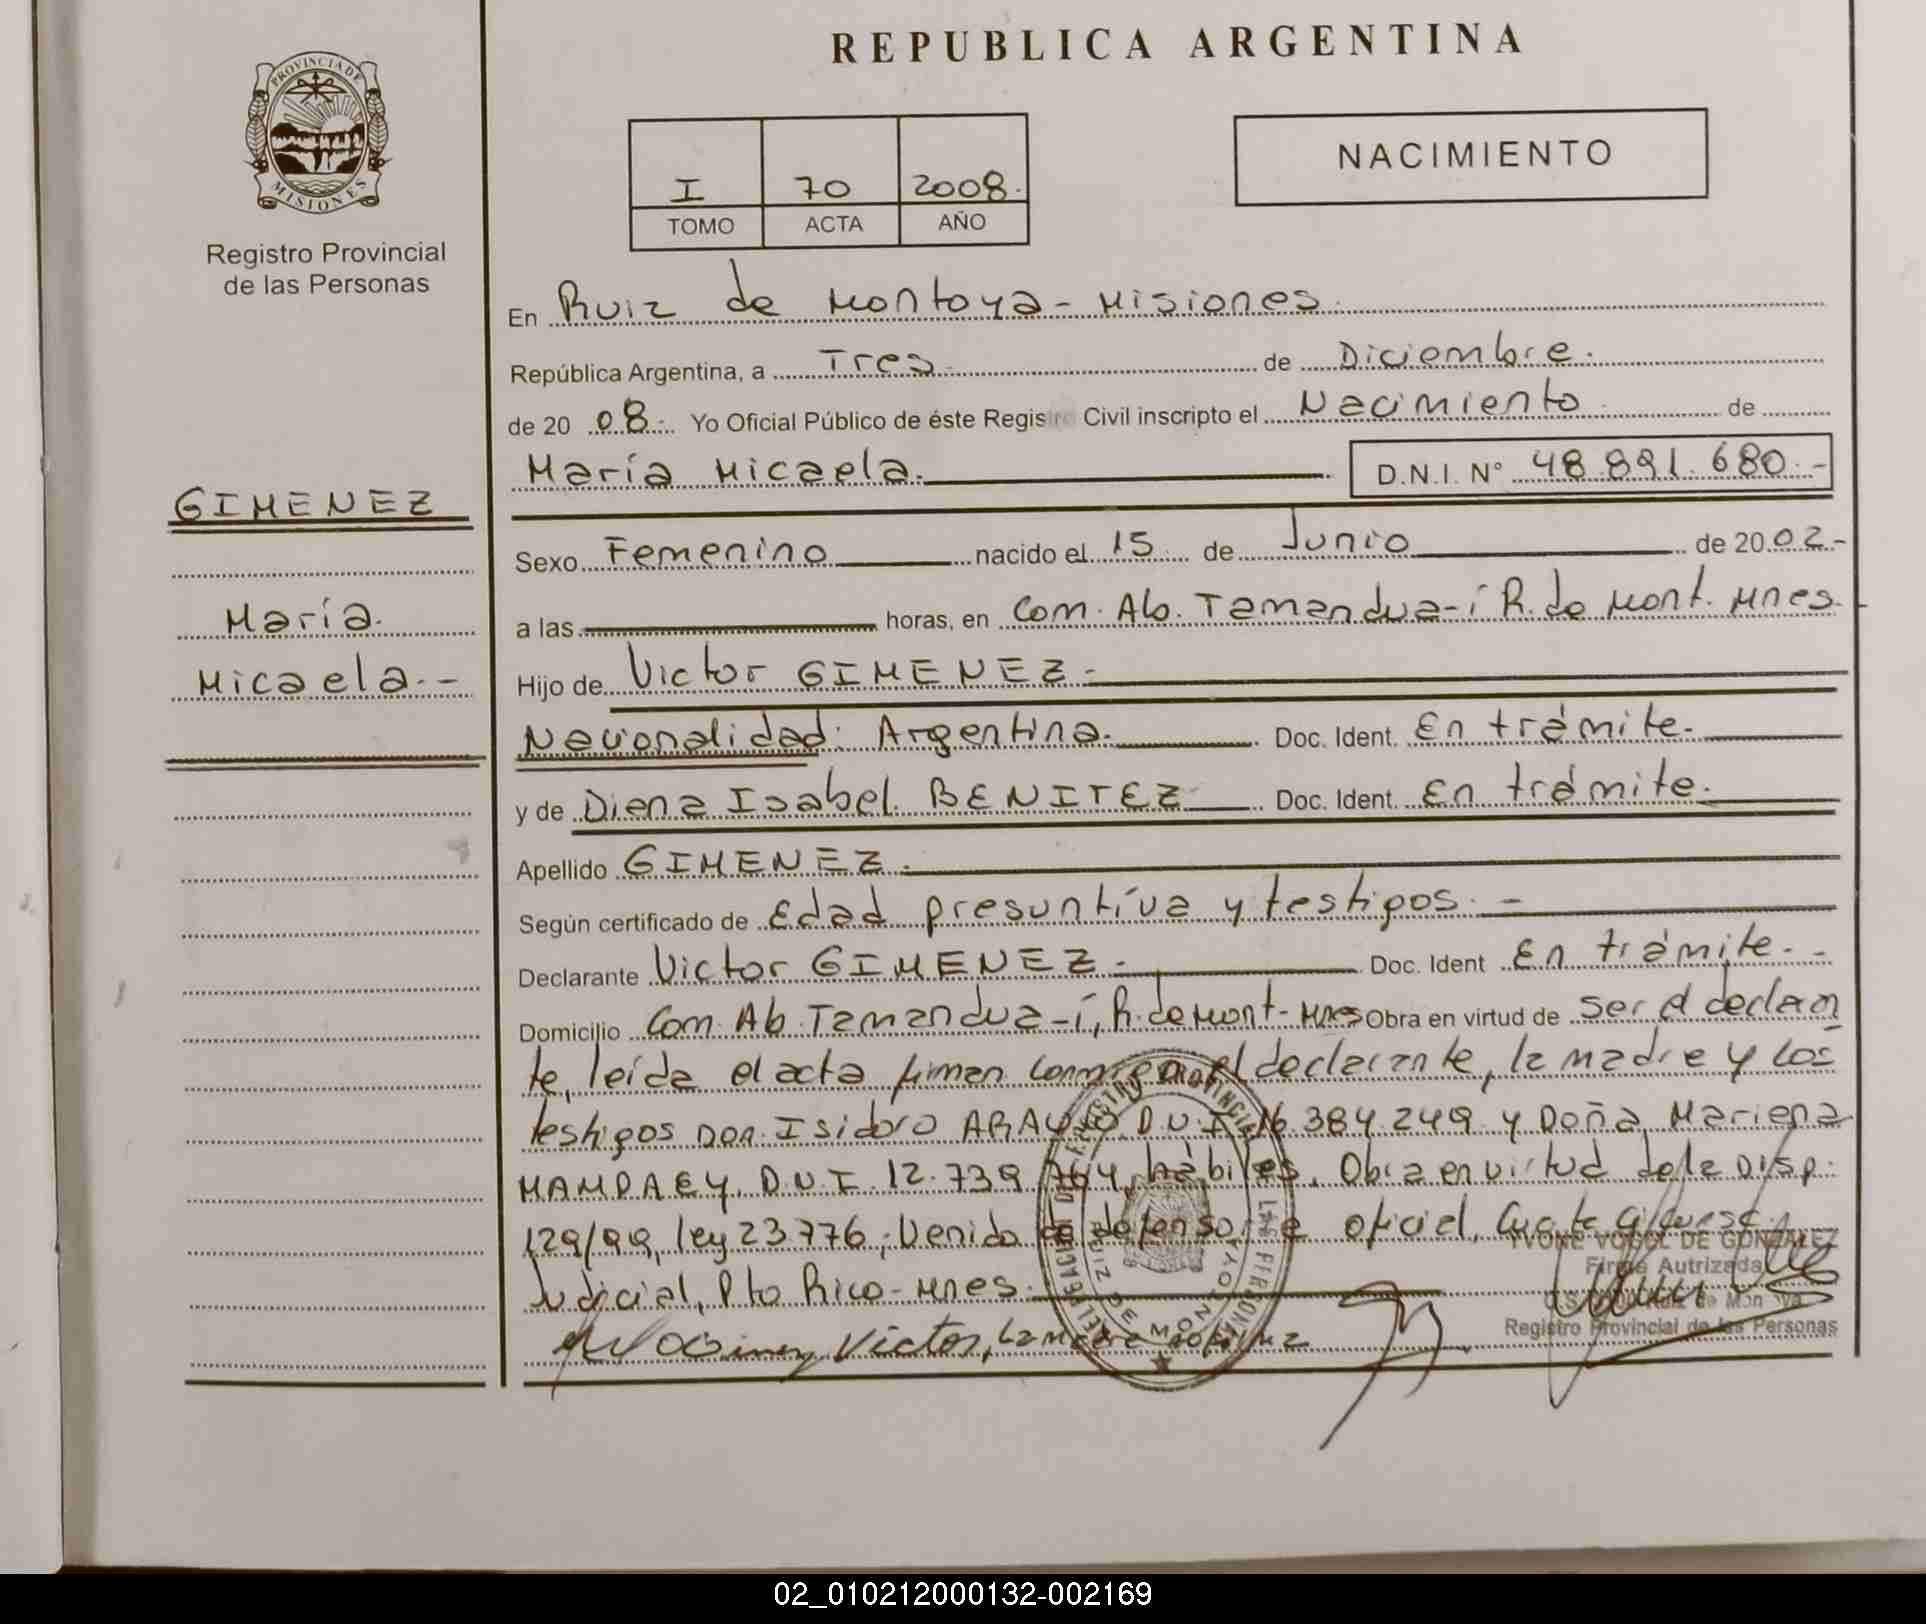 REPUBLICA ARGENTINA
PROVINCIA DE MISIONES
Registro Provincial
de las Personas
I 70 2008.
TOMO ACTA AÑO
NACIMIENTO
En Ruiz de Montoya - Misiones.
República Argentina, a Tres de Diciembre.
de 20 08.- Yo Oficial Público de éste Registro Civil inscripto el Nacimiento de
María Micaela. D.N.I. Nº 48.891.680.-
GIMENEZ
María
Micaela.-
Sexo Femenino nacido el 15 de Junio de 20 02.-
a las horas, en Com. Ab. Tamandua-í R. de Mont. Mnes.
Hijo de Victor GIMENEZ.-
Nacionalidad: Argentina. Doc. Ident. En trámite.
y de Diana Isabel BENITEZ Doc. Ident. En trámite.
Apellido GIMENEZ.
Según certificado de Edad presuntíva y testigos.-
Declarante Victor GIMENEZ.- Doc. Ident En trámite.-
Domicilio Com. Ab. Tamandua-í, R. de Mont- Mnes Obra en virtud de ser el declaran
te, leída el acta firman conmigo el declarante, la madre y los
testigos Don Isidoro ARAUJO D.N.I. 16.384.249 y Doña Mariana
D.N.I. 12.739.764, hábiles. Obra en virtud de la DISP:
129/99, ley 23776; Venido de defensoría oficial, Circunsc.
Judicial, Pto Rico - Mnes.
Victor, la madre
YVONE VOGEL DE GONZALEZ
Firma Autrizada
Ruiz de Montoya
Registro Provincial de las Personas
REGISTRO PROVINCIAL DE LAS PERSONAS
DELEGACION
RUIZ DE MONTOYA
02_010212000132-002169